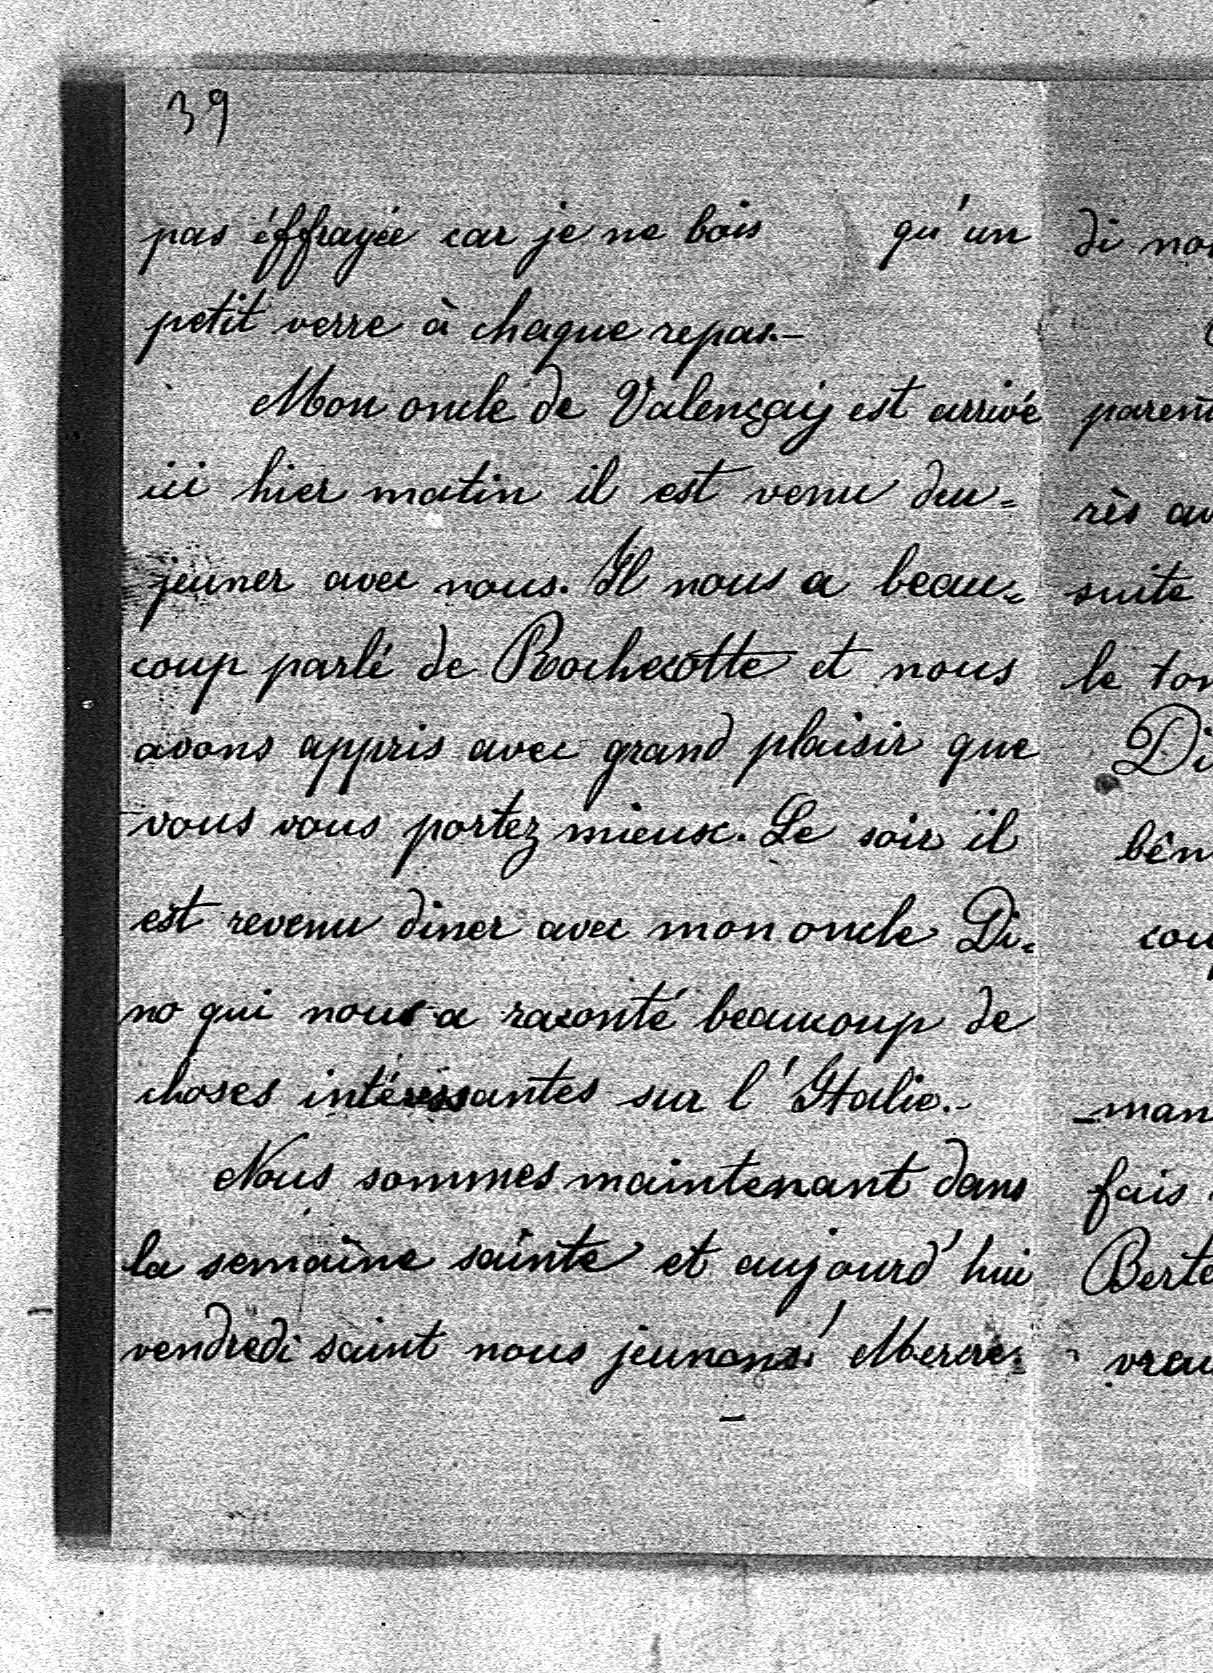 39
pas éffrayée car je ne bois qu'un
petit verre à chaque repas.-
Mon oncle de Valençay est arrivé
ici hier matin il est venu deu-
jeuner avec nous. Il nous a beau-
coup parlé de Rochecotte et nous
avons appris avec grand plaisir que
vous vous portez mieux. Le soir il
est revenu diner avec mon oncle Di-
no qui nous a raconté beaucoup de
choses intéressantes sur l'Italie.-
Nous sommes maintenant dans
la semaine sainte et aujourd'hui
vendredi saint nous jeunons! Mercre-
di no
paren
rès au
suite
le ton
Di
bén
cou
man
fais
Berte
vrau